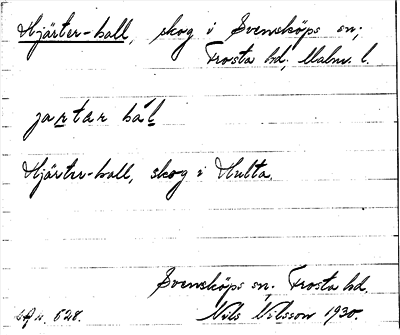 Hjärter-hall, skog i Svensköps sn;
Frosta hd, Malm. l.
jartar hál
Hjärter-hall, skog i Hulta.
Svensköps sn. Frosta hd.
Nils Nilsson 1930.
628.